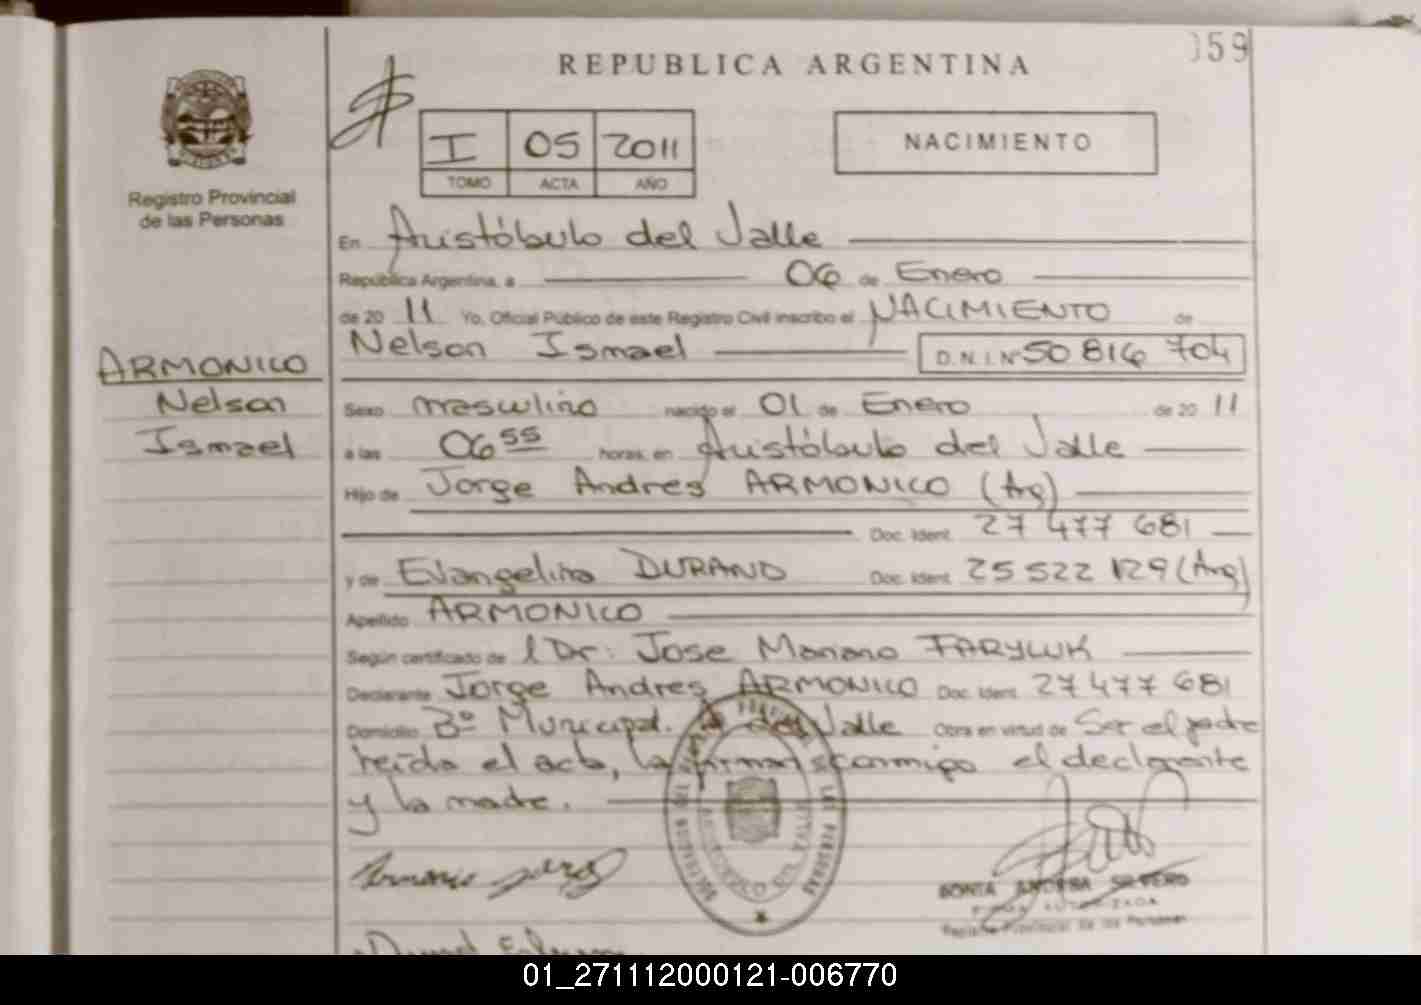 059
REPUBLICA ARGENTINA
Registro Provincial
de las Personas
I 05 2011
TOMO ACTA AÑO
NACIMIENTO
En Aristóbulo del Valle
República Argentina, a 06 de Enero
de 20 11 Yo, Oficial Público de este Registro Civil inscribo el NACIMIENTO de
Nelson Ismael D.N.I.Nº 50 816 704
ARMONICO
Nelson
Ismael
Sexo masculino nacido el 01 de Enero de 20 11
a las 06 55 horas, en Aristóbulo del Valle
Hijo de Jorge Andres ARMONICO (Arg)
Doc. Ident. 27 477 681
y de Evangelina DURAND Doc. Ident. 25 522 129 (Arg)
Apellido ARMONICO
Según certificado de l Dr: Jose Mariano FARYLUK
Declarante Jorge Andres ARMONICO Doc. Ident. 27 477 681
Domicilio Bº Municipal. A del Valle Obra en virtud de Ser el padre
leída el acta, la firman conmigo el declarante
y la madre.
SONIA ANDREA
FIRMA AUTORIZADA
Registro Provincial de las Personas
01_271112000121-006770